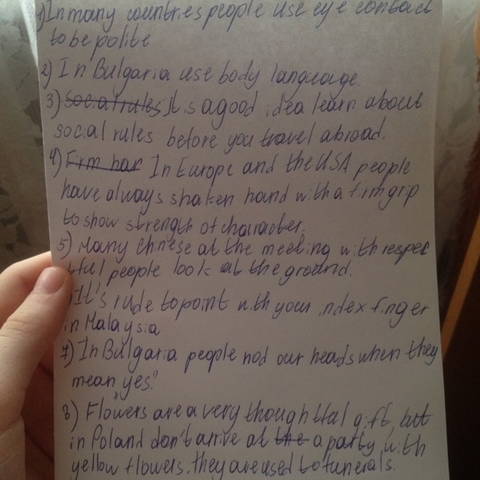 1) In many countries people use eye contact
to be polite
2) In Bulgaria use body language.
3) Social rules It is a good idea learn about
social rules before you travel abroad.
4) Firm har In Europe and the USA people
have always shaken hand with a firm grip
to show strength of character.
5) Many chinese at the meeting with respec
tful people look at the ground.
) It's rude to point with your index finger
in Malaysia
7) In Bulgaria people nod our heads when they
mean "yes".
8) Flowers are a very though tful gift, but
in Poland don't arrive at the a party with
yellow flowers. they are used to funerals.